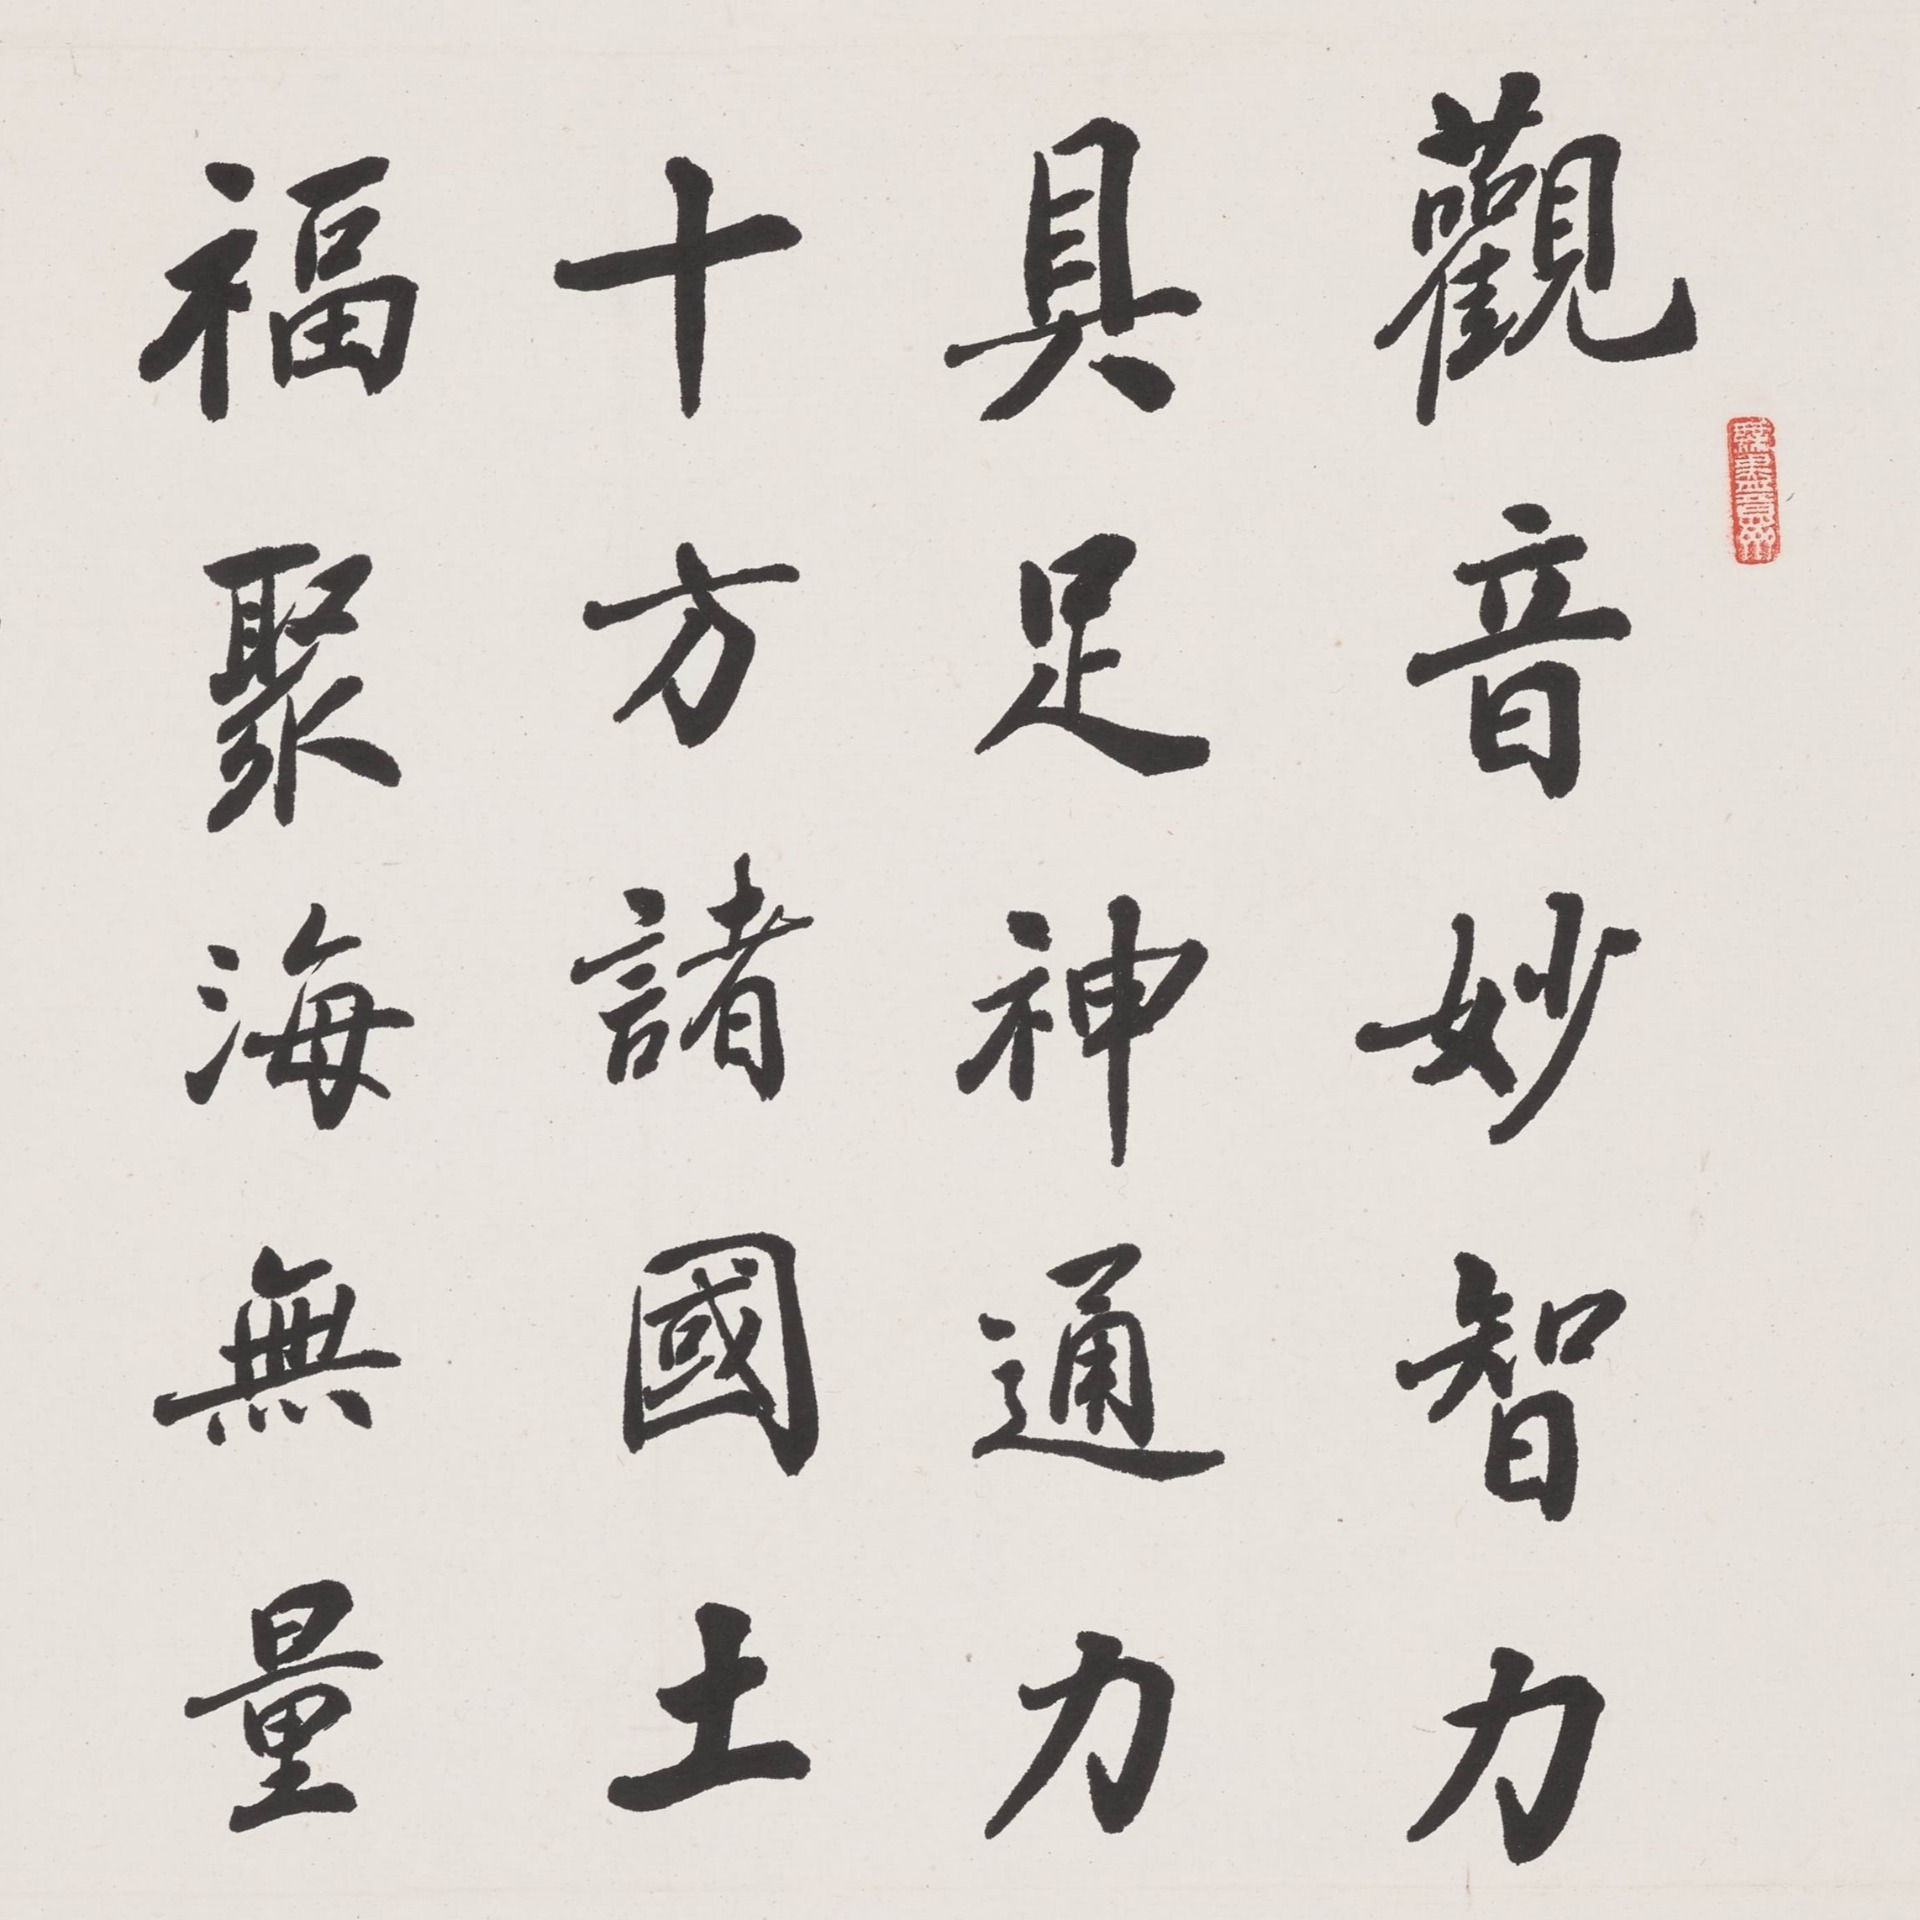 觀音妙智力
具足神通力
十方諸國土
福聚海無量